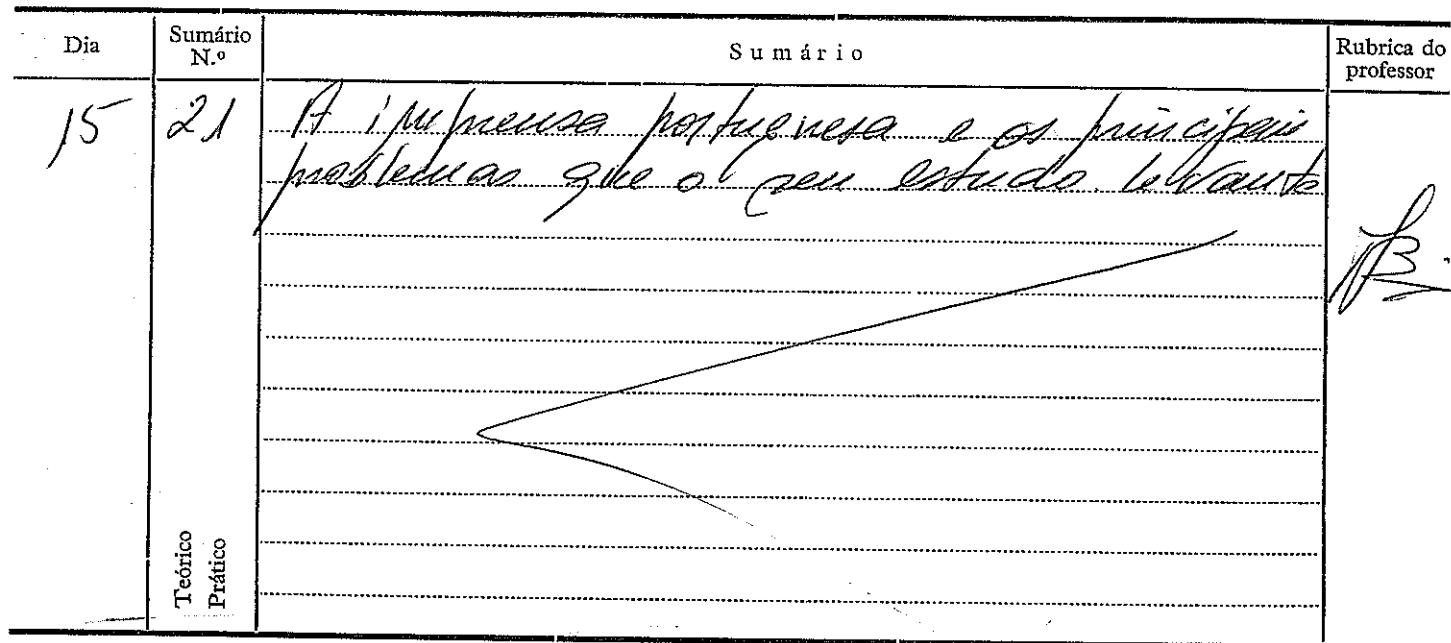 Dia Sumário N.º Sumário Rubrica do professor
15 21 A imprensa portuguesa e os principais
problemas que o seu estudo levanta
Teórico
Prático